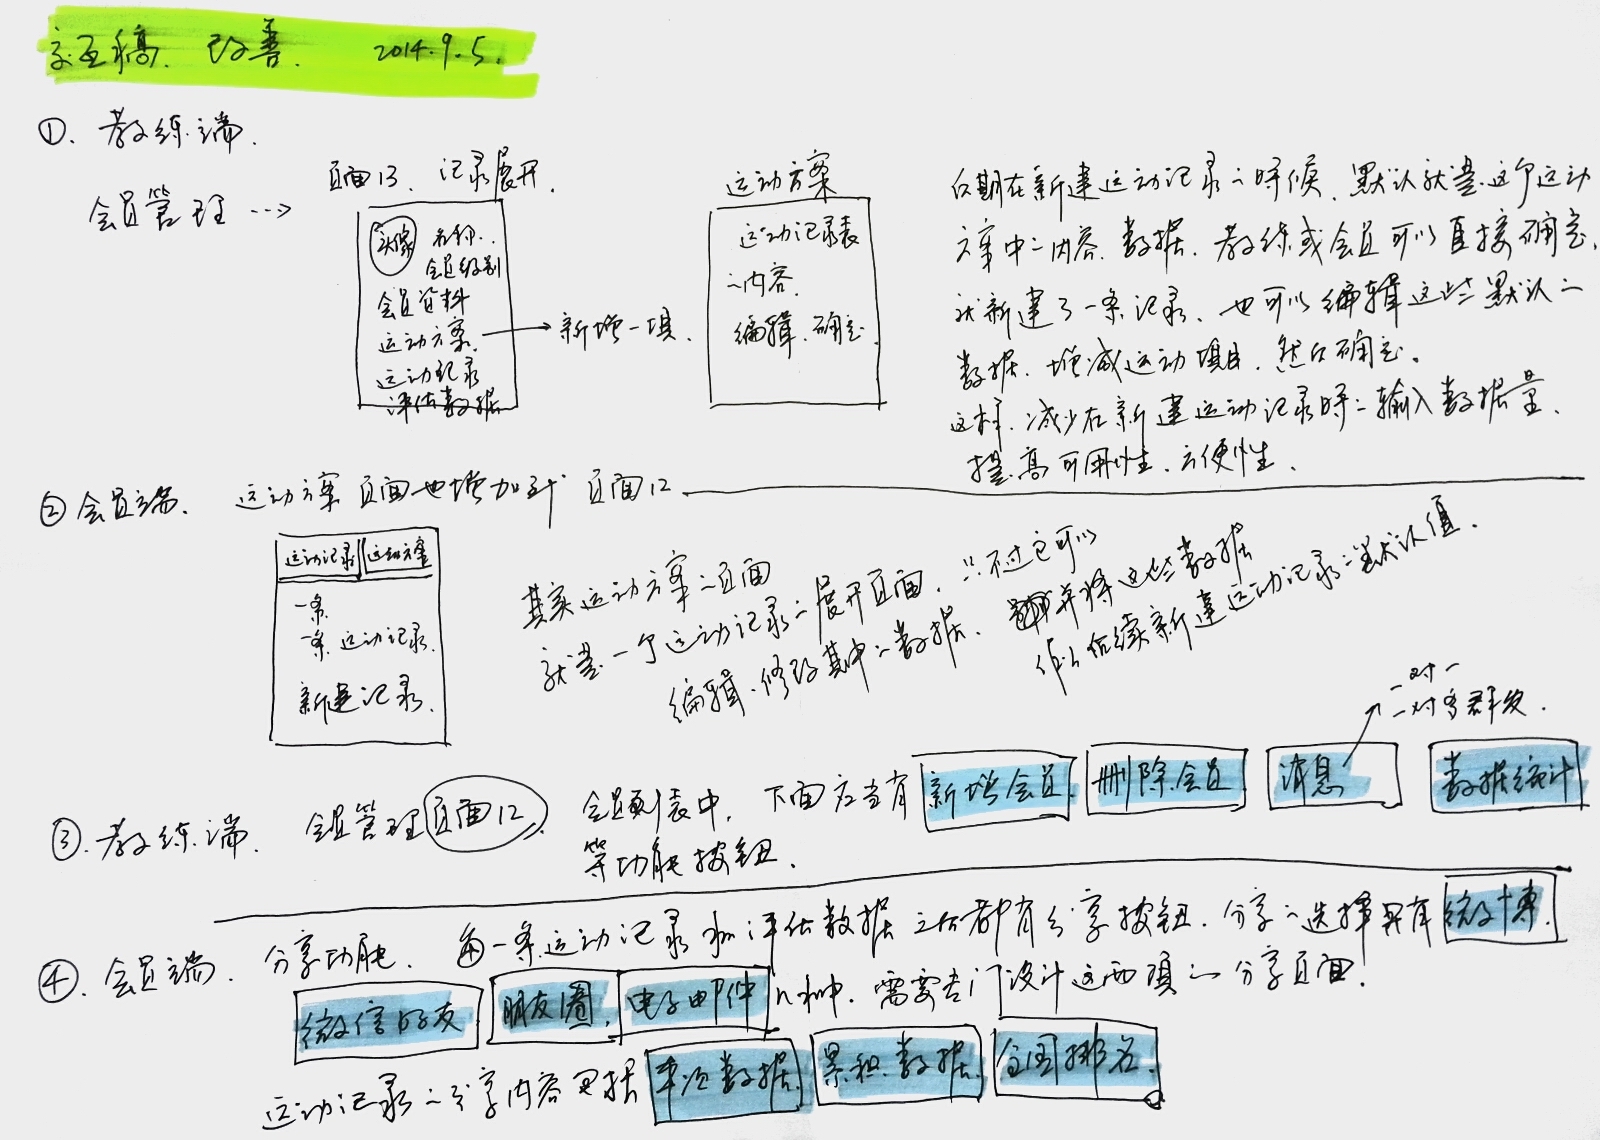 交互稿 改善. 2014.9.5.
①. 教练端.
会员管理 ⇢
页面13、记录展开.
头像 名称..
会员级别
会员资料
运动方案 → 新增一项.
运动记录
评估数据
运动方案
运动记录表
的内容.
编辑、确定.
后期在新建运动记录的时候、默认就是这个运动
方案中的内容、数据、教练或会员可以直接确定、
就新建了一条记录、也可以编辑这些默认的
数据、增减运动项目、然后确定。
这样、减少在新建运动记录时的输入数据量、
提高可用性、方便性、
② 会员端、 运动方案页面也增加到 页面12
运动记录 运动方案
一条
一条运动记录.
新建记录.
其实运动方案的页面
就是一个运动记录的展开页面、只不过它可以
编辑、修改其中的数据、并将这些数据
作为后续新建运动记录的默认值.
一对一
一对多群发.
③. 教练端. 会员管理 页面12、 会员列表中, 下面应当有 新增会员. 删除会员 消息 数据统计
等功能按钮.
④. 会员端. 分享功能. 每一条运动记录和评估数据之后都有分享按钮. 分享的选择只有 微博.
微信好友 朋友圈. 电子邮件 几种. 需要专门设计这两项的分享页面.
运动记录的分享内容包括 单次数据. 累积数据. 全国排名.